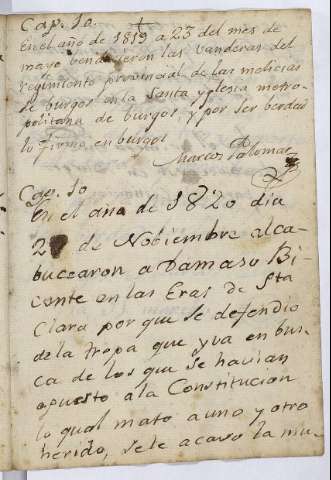 Cap. 10.
En el año de 1819 a 23 del mes de
mayo bendixeron las vanderas del
regimiento provincial de las melicias
de burgos en la Santa yglesia metro-
politana de burgos, y por ser berdad
lo firmo, en burgos
Marcos Palomar
Cap. 10
En el año de 1820 dia
2 de Nobiembre alca-
buceàron a Damaso Bi-
cente en las Eras de Sta
Clara por que se defendio
de la tropa que yva en bus-
ca de los que se havian
opuesto ala Constitucion
lo qual mato a uno y otro
herido, sele acavo la mu-